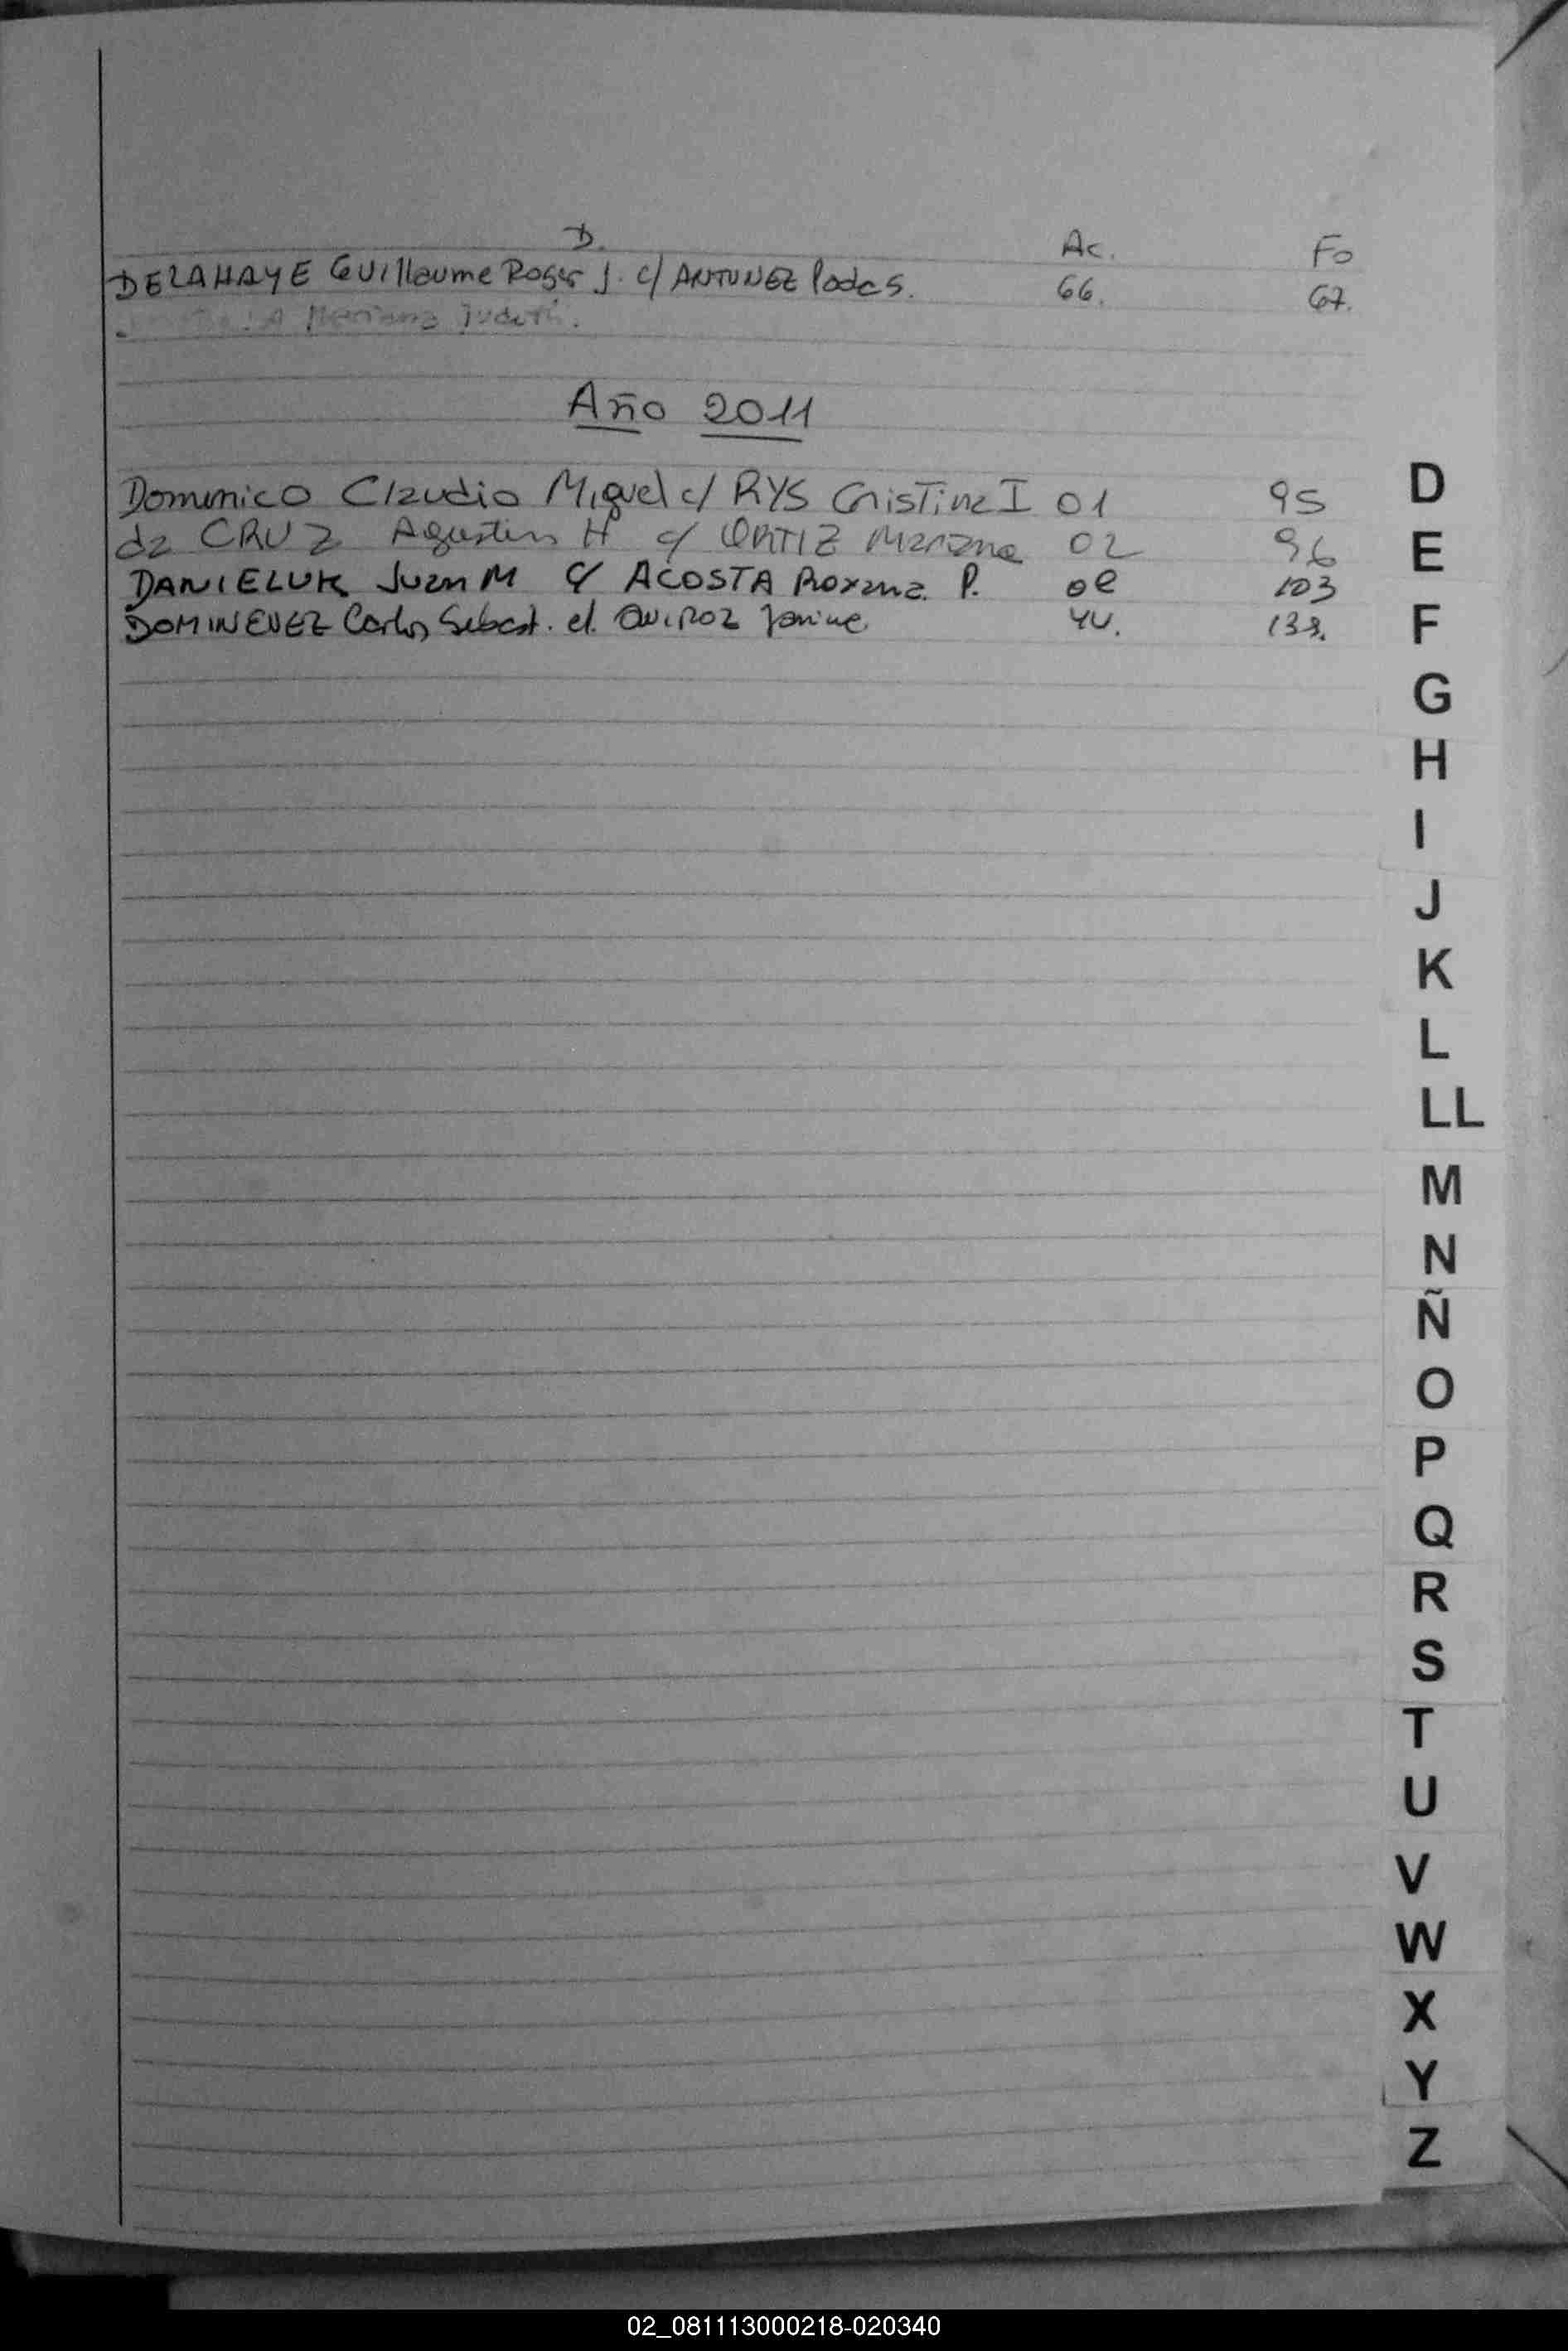 D.
Ac.
Fo
DELAHAYE Guillaume Roger J. c/ ANTUNEZ S. 66. 67.
Mariana Judith.
Año 2011
Domenico Claudio Miguel c/ RYS Cristina I 01 95
da CRUZ Agustin H c/ ORTIZ Mariana 02 96
DANIELUK Juan M c/ ACOSTA Roxana P. 08 103
DOMINGUEZ Carlos Sebast. c/. QUIROZ Janine. 44. 139.
D
E
F
G
H
I
J
K
L
LL
M
N
Ñ
O
P
Q
R
S
T
U
V
W
X
Y
Z
02_081113000218-020340